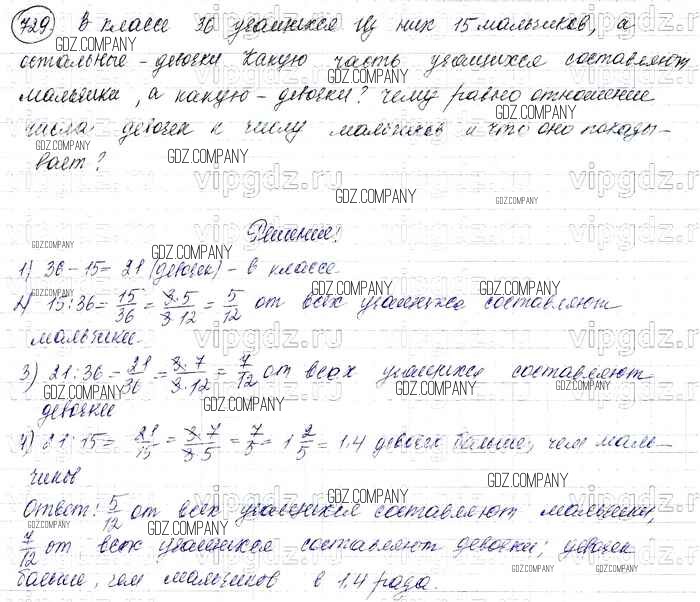 729. В классе 36 учащихся Из них 15 мальчиков, а
остальные - девочки Какую часть учащихся составляют
мальчики, а какую - девочки? Чему равно отношение
числа девочек к числу мальчиков и что оно показы-
вает?
Решение:
1) 36-15=21 (девочек) - в классе
2) 15:36=15/36=3·5/3·12=5/12 от всех учащихся составляют
мальчики.
3) 21:36=21/36=3·7/3·12=7/12 от всех учащихся составляют
девочки
4) 21:15=21/15=3·7/3·5=7/5=1 2/5=1.4 девочек больше, чем маль-
чиков
Ответ: 5/12 от всех учащихся составляют мальчики,
7/12 от всех учащихся составляют девочки; девочек
больше, чем мальчиков в 1.4 раза.
GDZ.COMPANY
vipgdz.ru